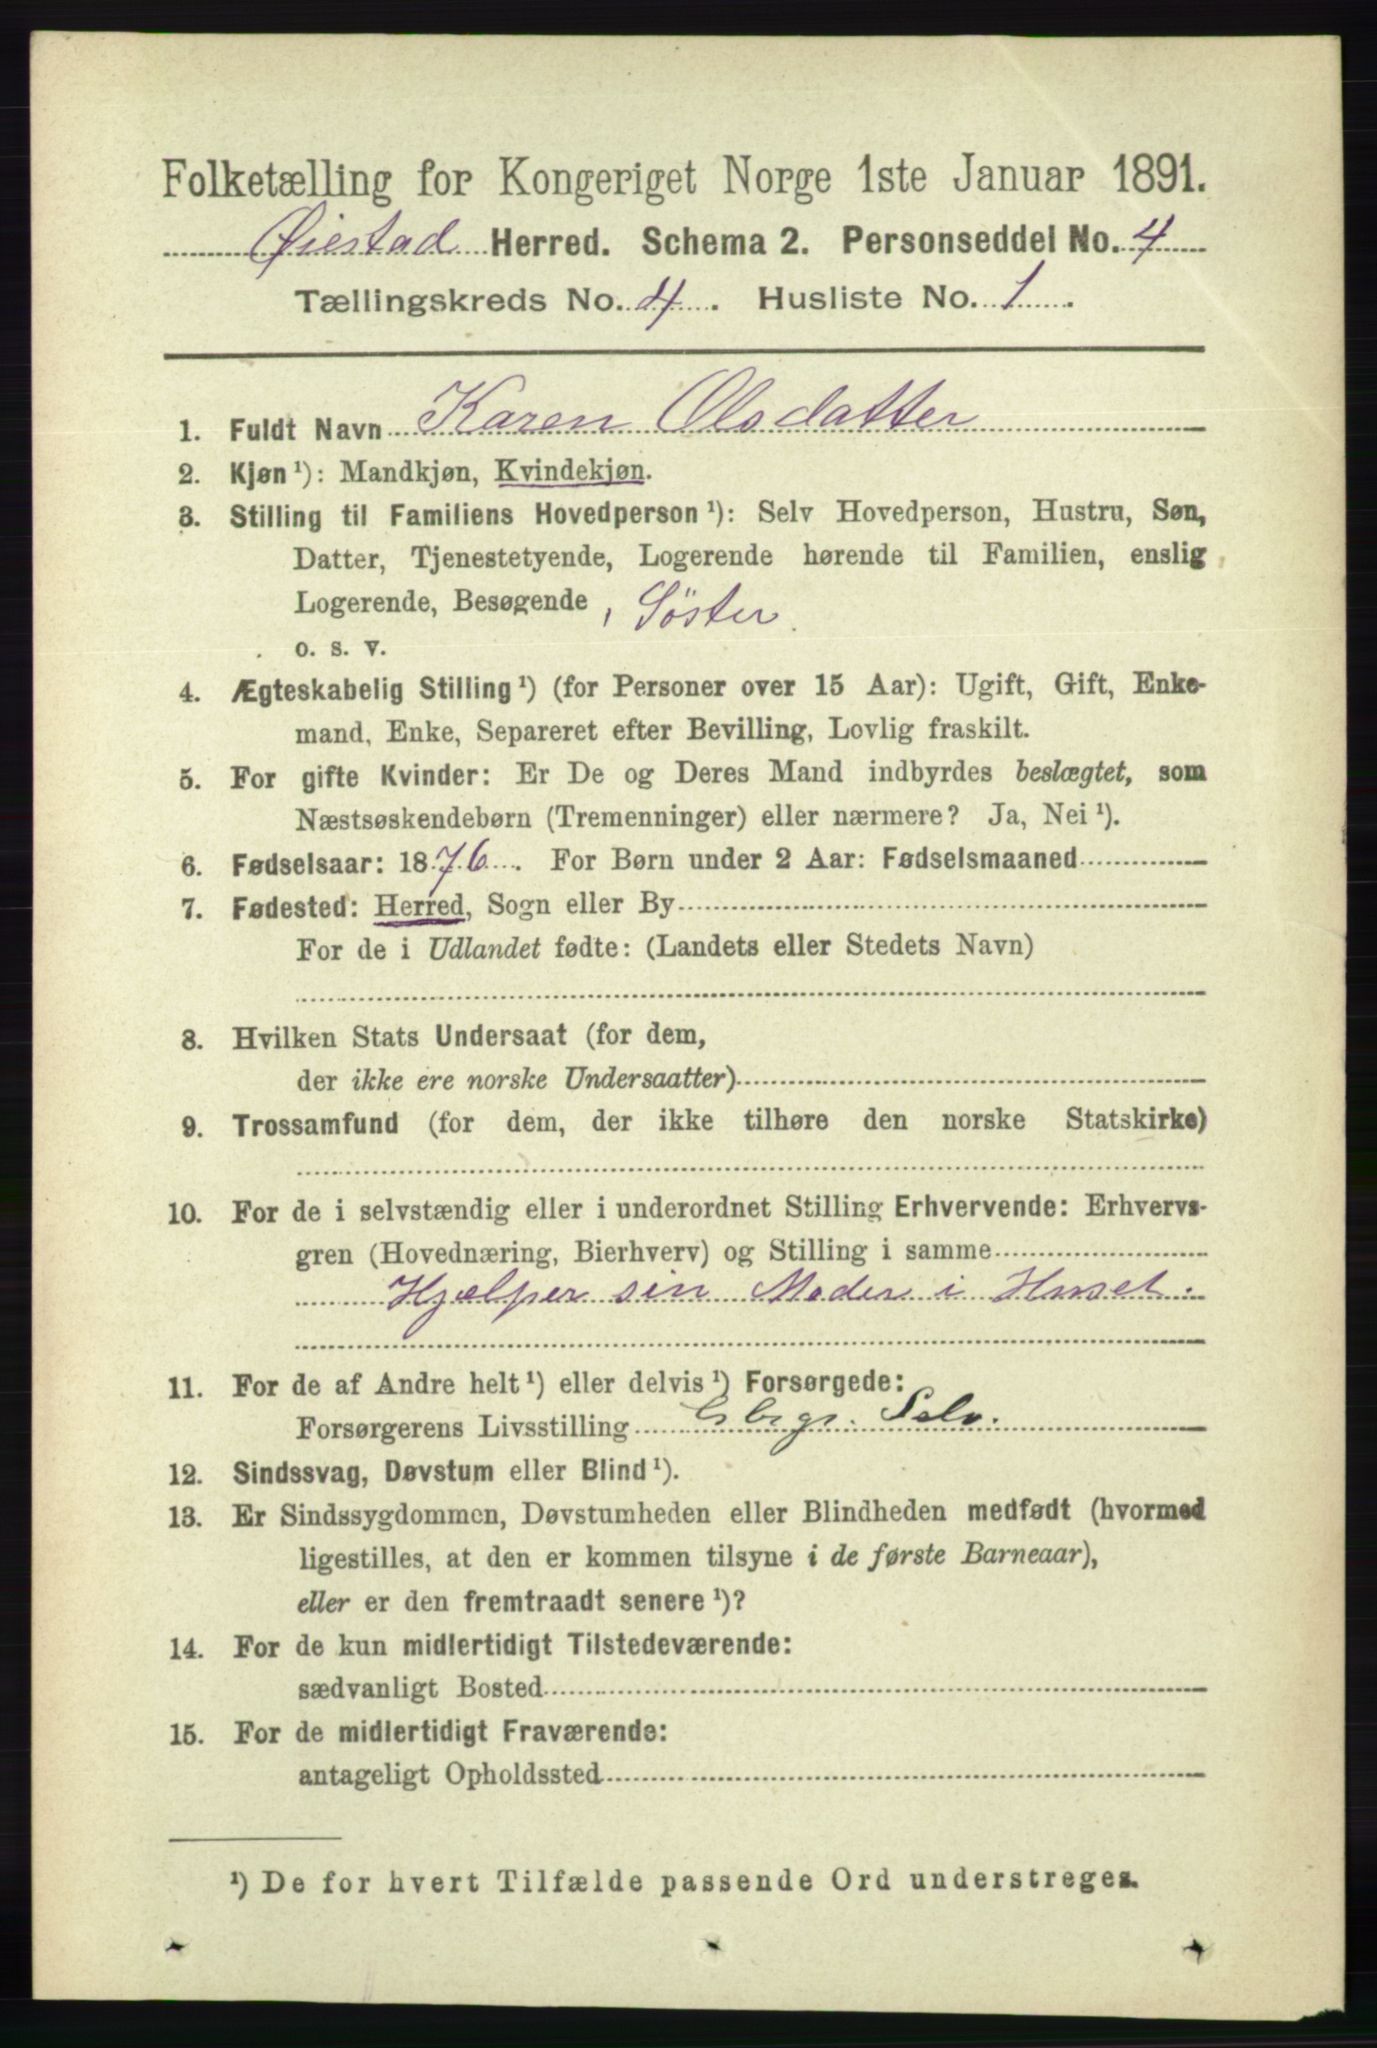 Folketælling for Kongeriget Norge 1ste Januar 1891.
Øiestad Herred. Schema 2. Personseddel No. 4
Tællingskreds No. 4. Husliste No. 1.
1. Fuldt Navn Karen Olsdatter
2. Kjøn¹): Mandkjøn, Kvindekjøn.
3. Stilling til Familiens Hovedperson¹): Selv Hovedperson, Hustru, Søn,
Datter, Tjenestetyende, Logerende hørende til Familien, enslig
Logerende, Besøgende, Söster.
o. s. v.
4. Ægteskabelig Stilling¹) (for Personer over 15 Aar): Ugift, Gift, Enke-
mand, Enke, Separeret efter Bevilling, Lovlig fraskilt.
5. For gifte Kvinder: Er De og Deres Mand indbyrdes beslægtet, som
Næstsøskendebørn (Tremenninger) eller nærmere? Ja, Nei¹).
6. Fødselsaar: 1876. For Børn under 2 Aar: Fødselsmaaned
7. Fødested: Herred, Sogn eller By
For de i Udlandet fødte: (Landets eller Stedets Navn)
8. Hvilken Stats Undersaat (for dem,
der ikke ere norske Undersaatter)
9. Trossamfund (for dem, der ikke tilhøre den norske Statskirke)
10. For de i selvstændig eller i underordnet Stilling Erhvervende: Erhvervs-
gren (Hovednæring, Bierhverv) og Stilling i samme
Hjælper sin Moder i Huset.
11. For de af Andre helt¹) eller delvis¹) Forsørgede:
Forsørgerens Livsstilling Selv.
12. Sindssvag, Døvstum eller Blind¹).
13. Er Sindssygdommen, Døvstumheden eller Blindheden medfødt (hvormed
ligestilles, at den er kommen tilsyne i de første Barneaar),
eller er den fremtraadt senere¹)?
14. For de kun midlertidigt Tilstedeværende:
sædvanligt Bosted
15. For de midlertidigt Fraværende:
antageligt Opholdssted
¹) De for hvert Tilfælde passende Ord understreges.